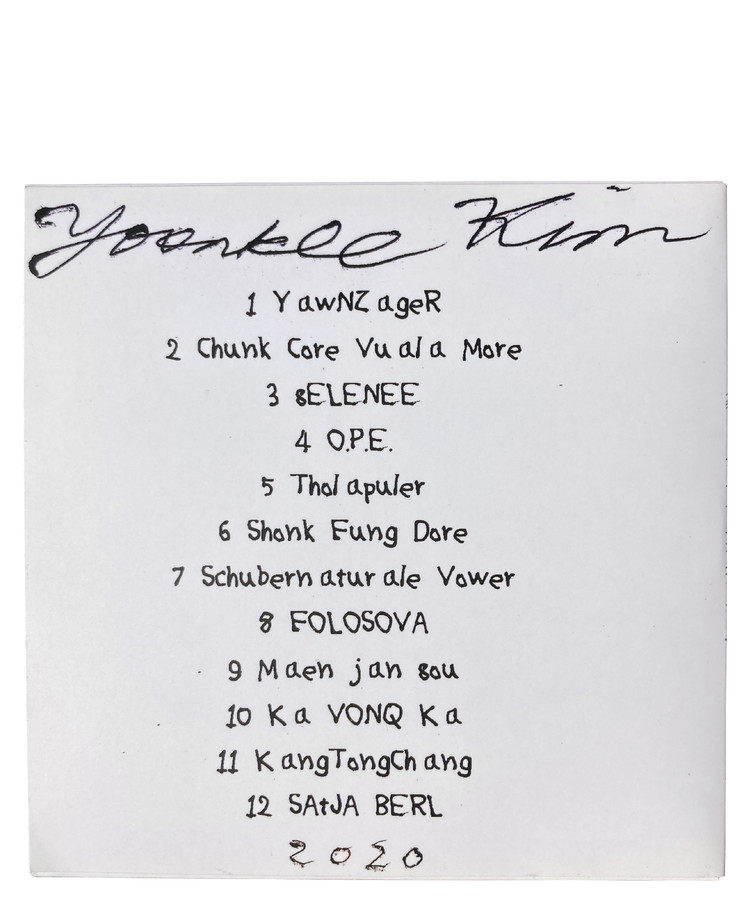 Yoonkee Kim
1 YawNZageR
2 Chunk Core Vuala More
3 sELENEE
4 O.P.E.
5 Tholapuler
6 Shonk Fung Dore
7 Schubernaturale Vower
8 FOLOSOVA
9 Maen jan sou
10 Ka VONQ Ka
11 KangTongChang
12 SAtJA BERL
2020